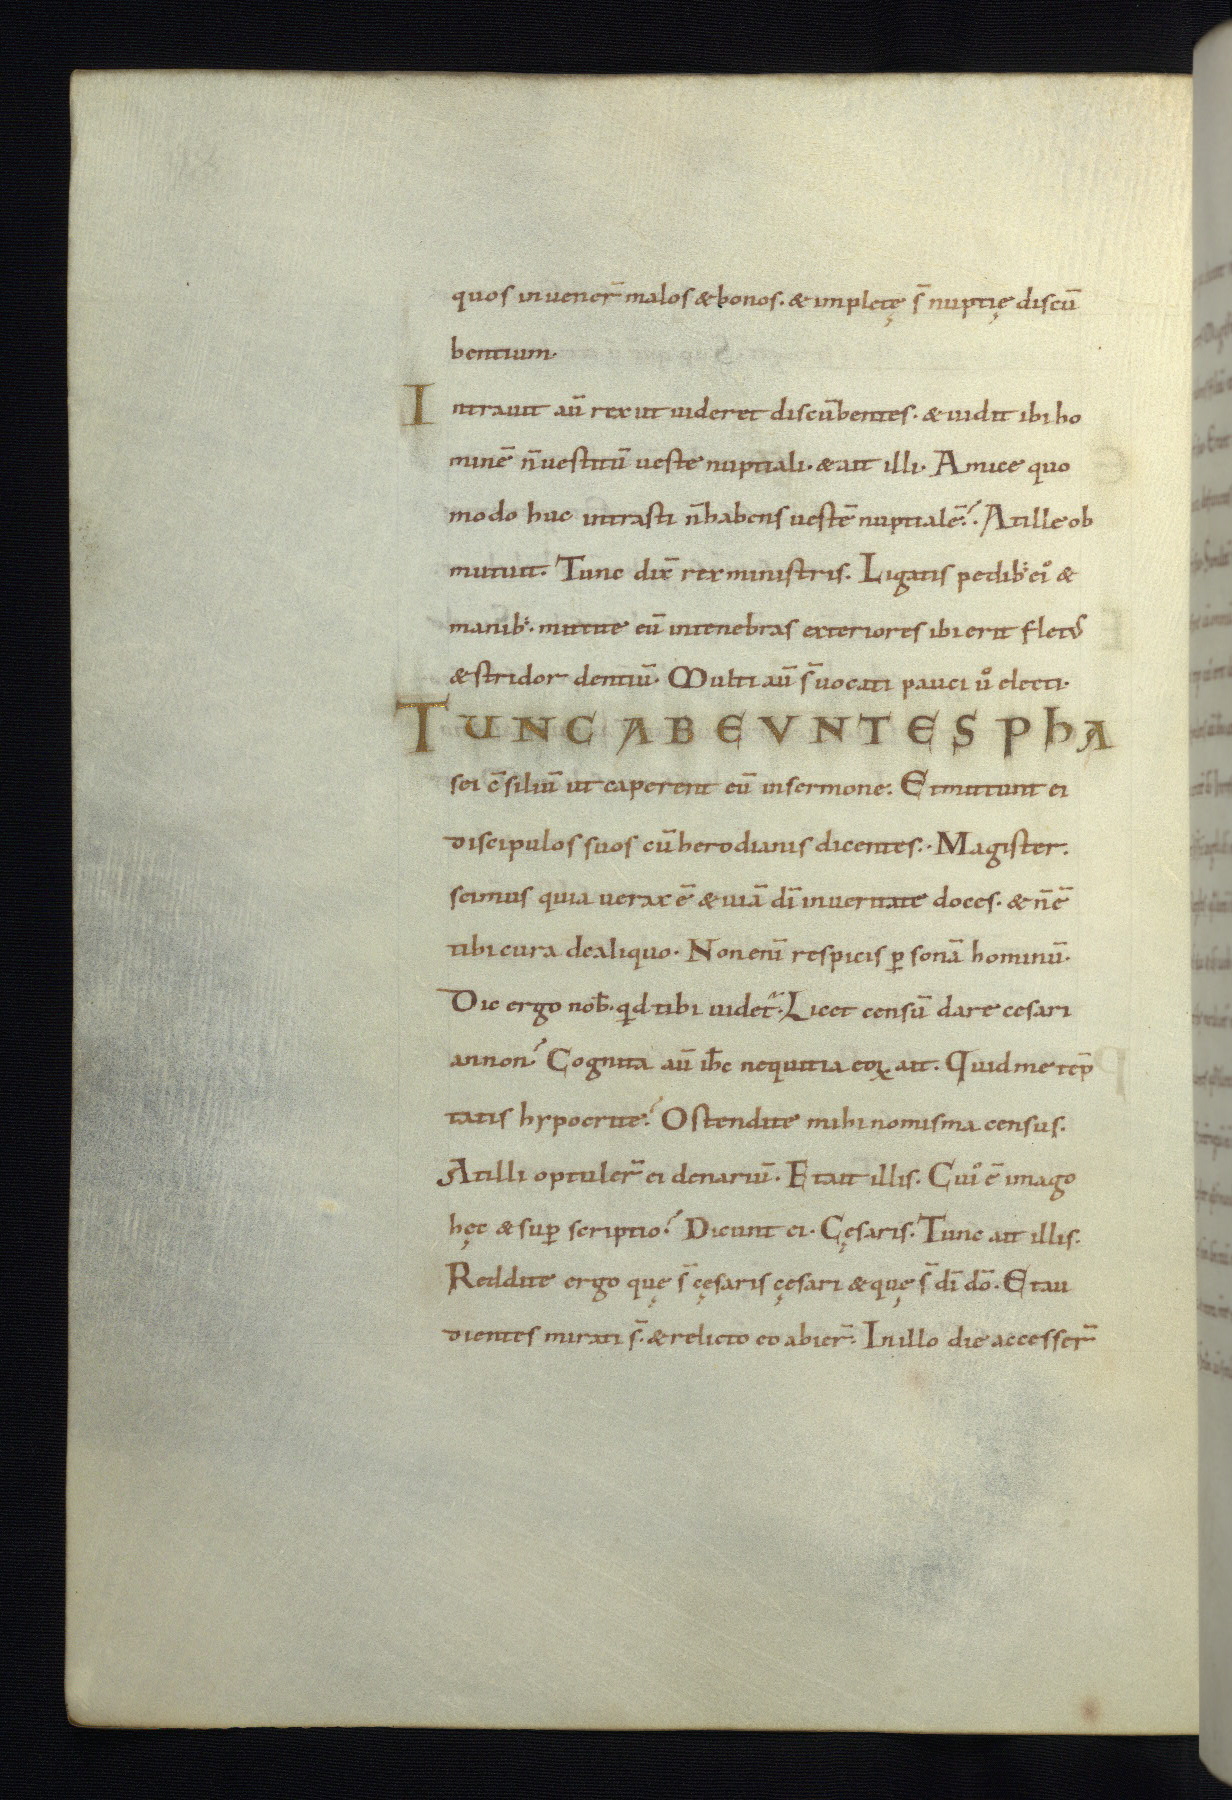 quos inuener̄ malos & bonos. & impletę s̄ nuptię discū
bentium.
Intrauit aū rex ut uideret discūbentes. & uidit ibi ho
minē n̄ uestitū ueste nuptiali. & ait illi. Amice quo
modo huc intrasti n̄ habens uestē nuptialē? At ille ob
mutuit. Tunc dix̄ rex ministris. Ligatis pedib; ei᾿ &
manib;. mittite eū in tenebras exteriores ibi erit flet᾿
& stridor dentiū. Multi aū s̄ uocati pauci uͦ electi.
TUNC ABEVNTES PhA
sei c̄silium ut caperent eū in sermone. Et mittunt ei
discipulos suos cū herodianis dicentes. Magister.
scimus quia uerax ē & uiā dī in ueritate doces. & n̄ ē
tibi cura de aliquo. Non enī respicis ꝑsonā hominū.
Dic ergo nob̄. qd tibi uidet᷑. Licet censū dare cesari
an non? Cognita aū ih̄c nequitia eoꝝ ait. Quid me tēp
tatis hypocrite? Ostendite mihi nomisma census.
At illi optuler̄ ei denariū. Et ait illis. Cui᾿ ē imago
hęc & suꝑ scriptio? Dicunt ei. Cęsaris. Tunc ait illis.
Reddite ergo quę s̄ cęsaris cęsari & quę s̄ dī dō. Et au
dientes mirati s̄. & relicto eo abier̄. In illo die accesser̄